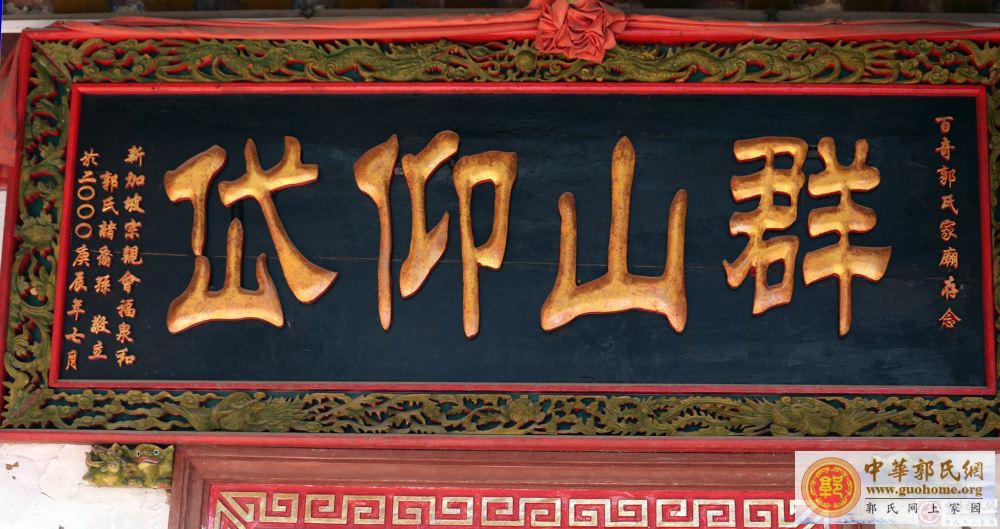 百奇郭氏家廟存念
群山仰岱
新加坡宗親會福泉和
郭氏諸裔孫 敬立
於二〇〇〇庚辰年七月
中華郭氏網
www.guohome.org
郭氏网上家园